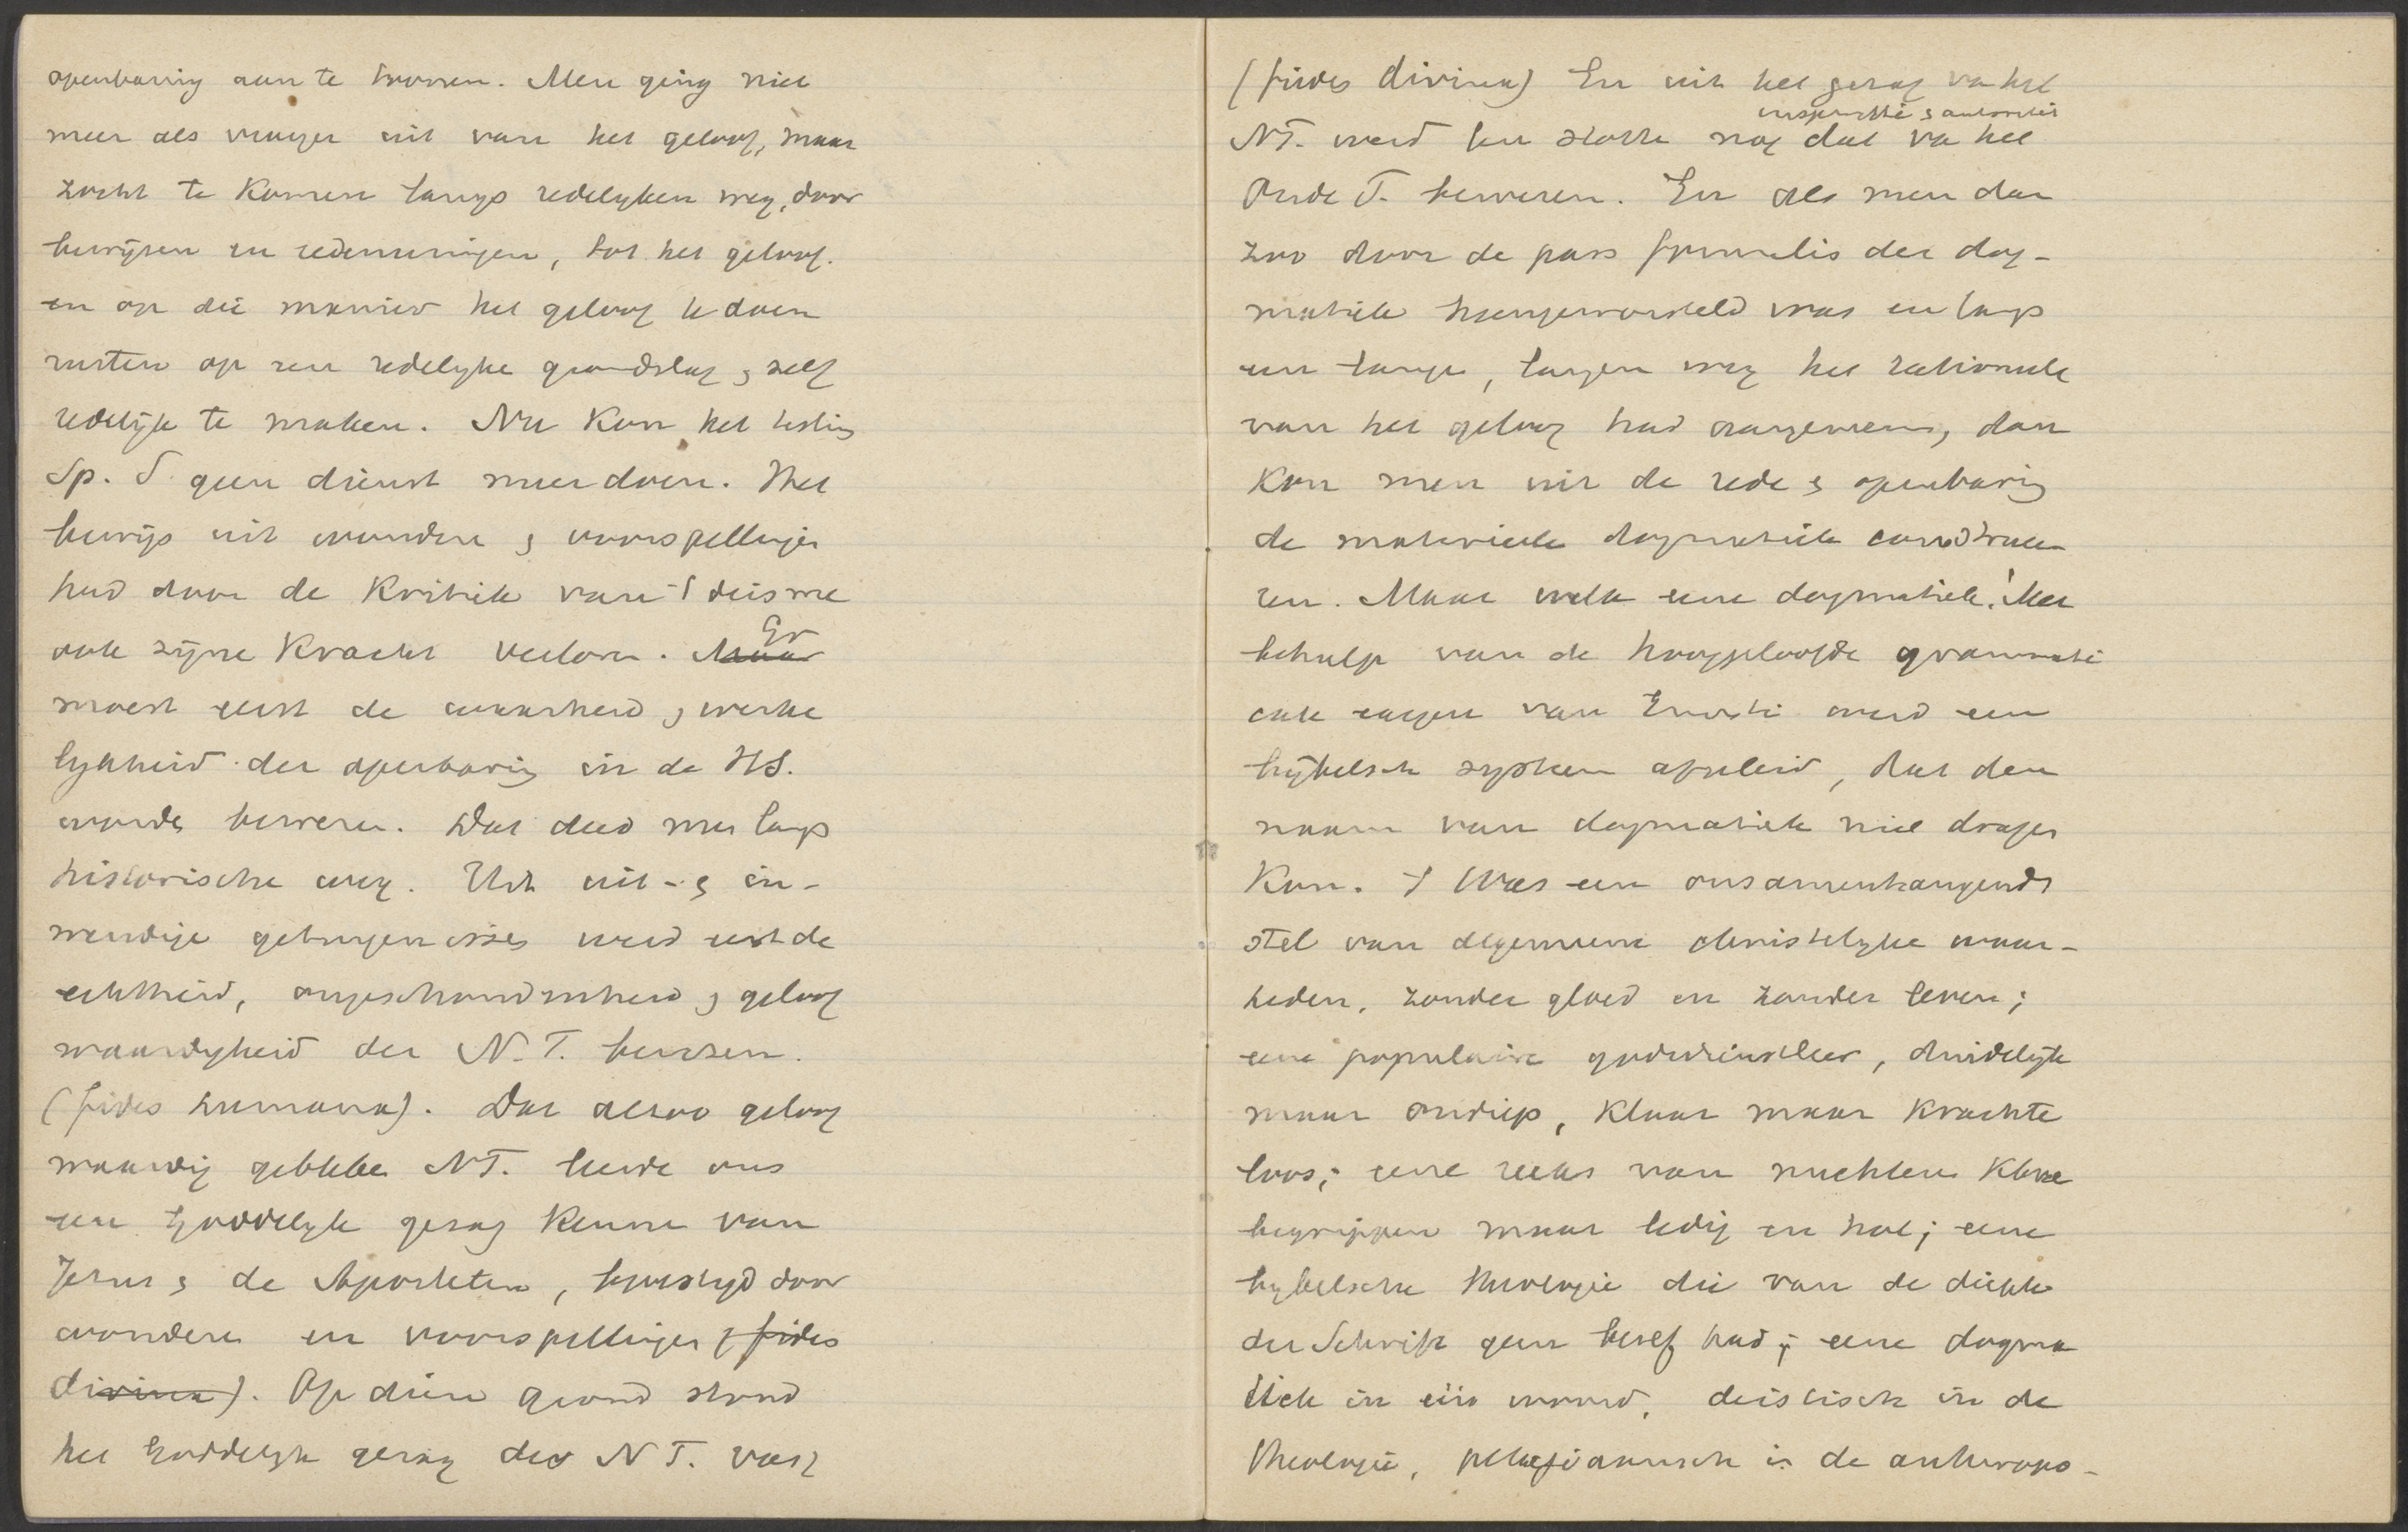 openbaring aan te toonen. Men ging niet
meer als vroeger uit van het geloof, maar
zocht te komen langs redelyken weg, door
bewijzen en redeneeringen, tot het geloof.
en op die manier het geloof te doen
rusten op een redelyke grondslag & zelf
redelijk te maken. Nu kon het testim
Sp. S. geen dienst meer doen. Het
bewijs uit wonderen & voorspellingen
had door de kritiek van 't deisme
ook zijne kracht verloren. Maar Er
moest eerst de waarheid & werke
lykheid der openbaring in de HS.
worde bewezen. Dat deed men langs
historische weg. Uit uit- & in-
wendige getuigenisses werd eerst de
echtheid, ongeschondenheid & geloof
waardigheid der N.T. bewezen.
(fides humana). Dat alzoo geloof
waardig gebleke NT. leerde ons
een Goddelyk gezag kenne van
Jezus & de Apostelen, bevestigd door
wondere en voorspellingen (fides
divina). Op dien grond stond
het Goddelyk gezag der NT. vast
(fides divina) En uit het gezag va het
inspiratie & autoriteit
NT. werd ten slotte nog dat va het
Oude T. bewezen. En als men dan
zoo door de pars formalis der dog-
matiek heengeworsteld was en langs
een lange, langen weg het rationeele
van het geloof had aangewezen, dan
kon men uit de rede & openbaring
de materieele dogmatiek construee-
ren. Maar welk eene dogmatiek! Met
behulp van de hooggeloofde grammati
cale exegese van Ernesti werd een
bijbelsch systeem afgeleid, dat den
naam van dogmatiek niet dragen
kon. 't Was een onsamenhangends
stel van algemeene christelyke waar-
heden, zonder gloed en zonder leven;
eene populaire godsdienstleer, duidelijk
maar ondiep, klaar maar krachte
loos; eene reeks van nuchtere klare
begrippen maar ledig en hol; eene
bybelsche theologie die van de diepte
der Schrift geen besef had; eene dogma
tiek in één woord, deistisch in de
theologie, pelagiaansch in de anthropo-